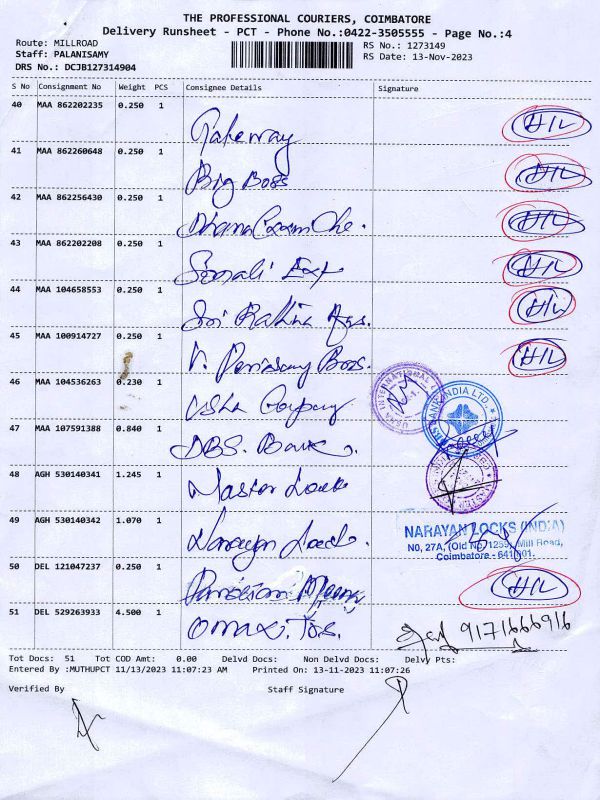 THE PROFESSIONAL COURIERS, COIMBATORE
Delivery Runsheet - PCT - Phone No.:0422-3505555 - Page No.:4
Route: MILLROAD
RS No.: 1273149
Staff: PALANISAMY
RS Date: 13-Nov-2023
DRS No.: DCJB127314904
S No Consignment No Weight PCS Consignee Details Signature
40 MAA 862202235 0.250 1 Gateway HIL
41 MAA 862260648 0.250 1 Big Boss HIL
42 MAA 862256430 0.250 1 HIL
43 MAA 862202208 0.250 1 Sonali HIL
44 MAA 104658553 0.250 1 Sri HIL
45 MAA 100914727 0.250 1 HIL
46 MAA 104536263 0.230 1 Usha Company
47 MAA 107591388 0.840 1 DBS. Bank
48 AGH 530140341 1.245 1 Master Lock
49 AGH 530140342 1.070 1 Narayan Lock
NARAYAN LOCKS (INDIA)
NO, 27A, (Old No 1255) Mill Road,
Coimbatore - 641 001.
50 DEL 121047237 0.250 1 HIL
51 DEL 529263933 4.500 1 Omax. 9171666916
Tot Docs: 51 Tot COD Amt: 0.00 Delvd Docs: Non Delvd Docs: Delvy Pts:
Entered By :MUTHUPCT 11/13/2023 11:07:23 AM Printed On: 13-11-2023 11:07:26
Verified By Staff Signature